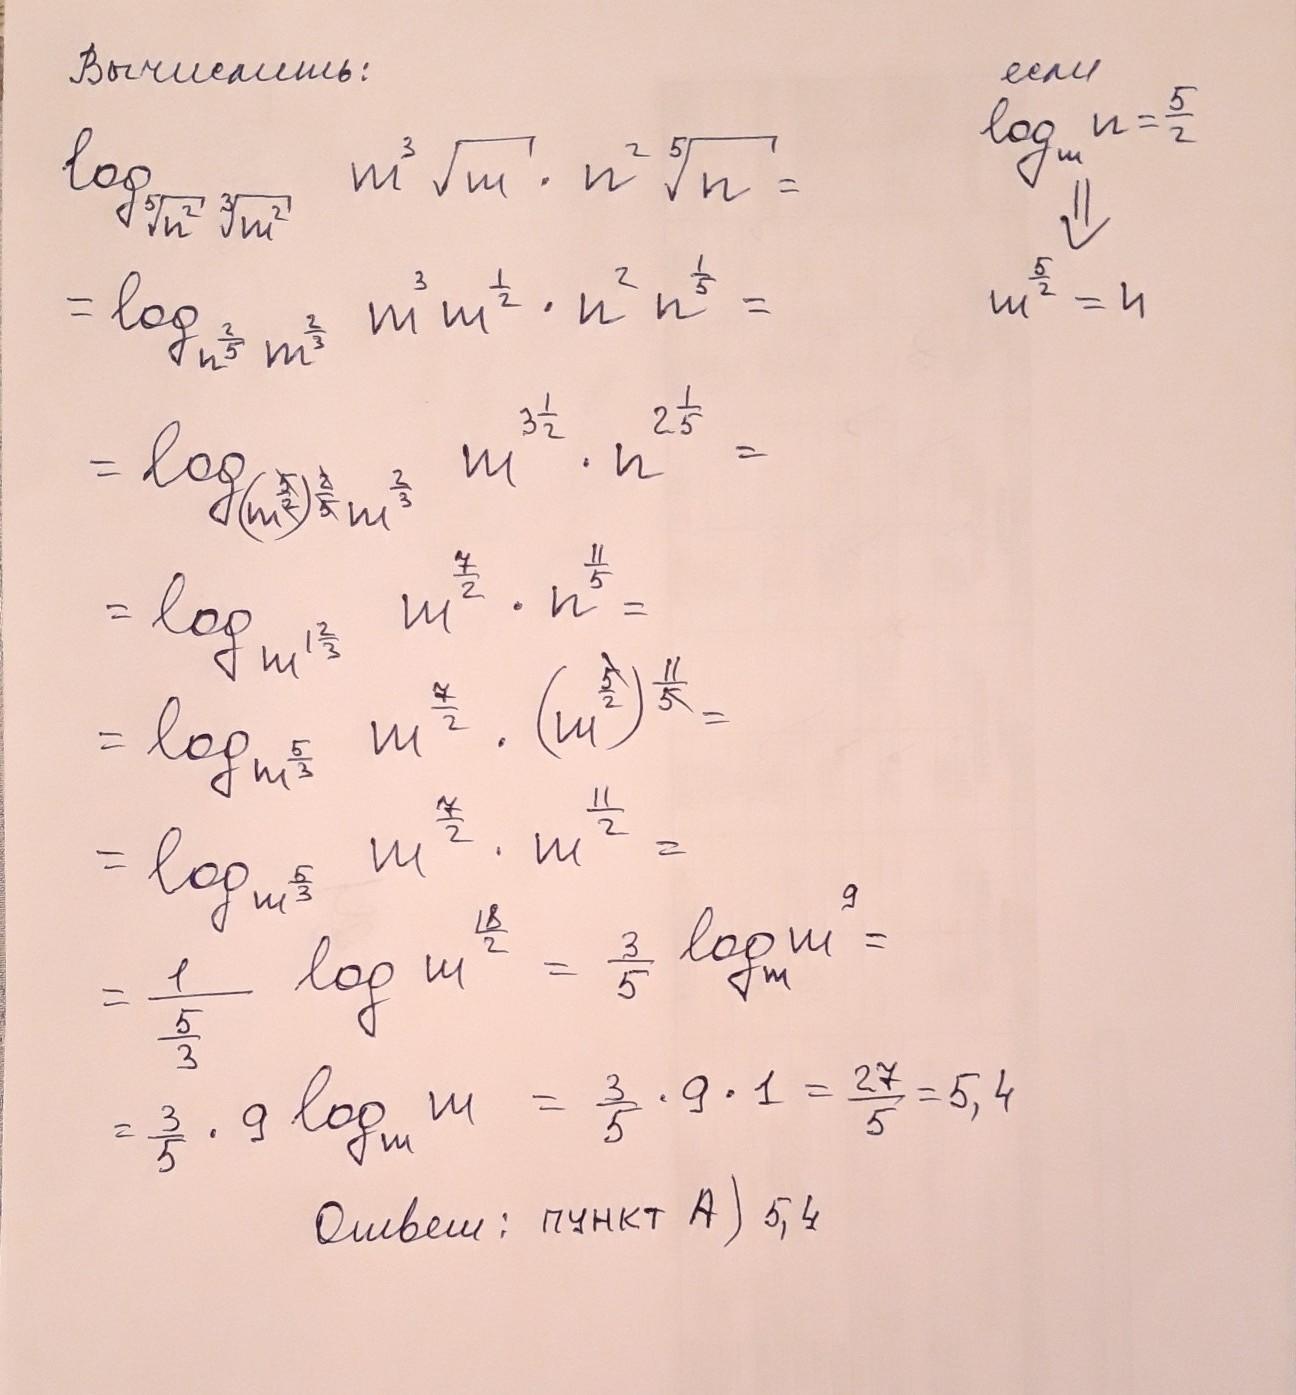 Вычислить:
если
log_m n = 5/2
⇓
m^(5/2) = n
log_(⁵√n² ³√m²) m³ √m · n² ⁵√n =
= log_(n^(2/5) m^(2/3)) m³ m^(1/2) · n² n^(1/5) =
= log_((m^(5/2))^(2/5) m^(2/3)) m^(3 1/2) · n^(2 1/5) =
= log_(m^(1 2/3)) m^(7/2) · n^(11/5) =
= log_(m^(5/3)) m^(7/2) · (m^(5/2))^(11/5) =
= log_(m^(5/3)) m^(7/2) · m^(11/2) =
= 1/(5/3) log m^(18/2) = 3/5 log_m m⁹ =
= 3/5 · 9 log_m m = 3/5 · 9 · 1 = 27/5 = 5,4
Ответ: пункт А) 5,4